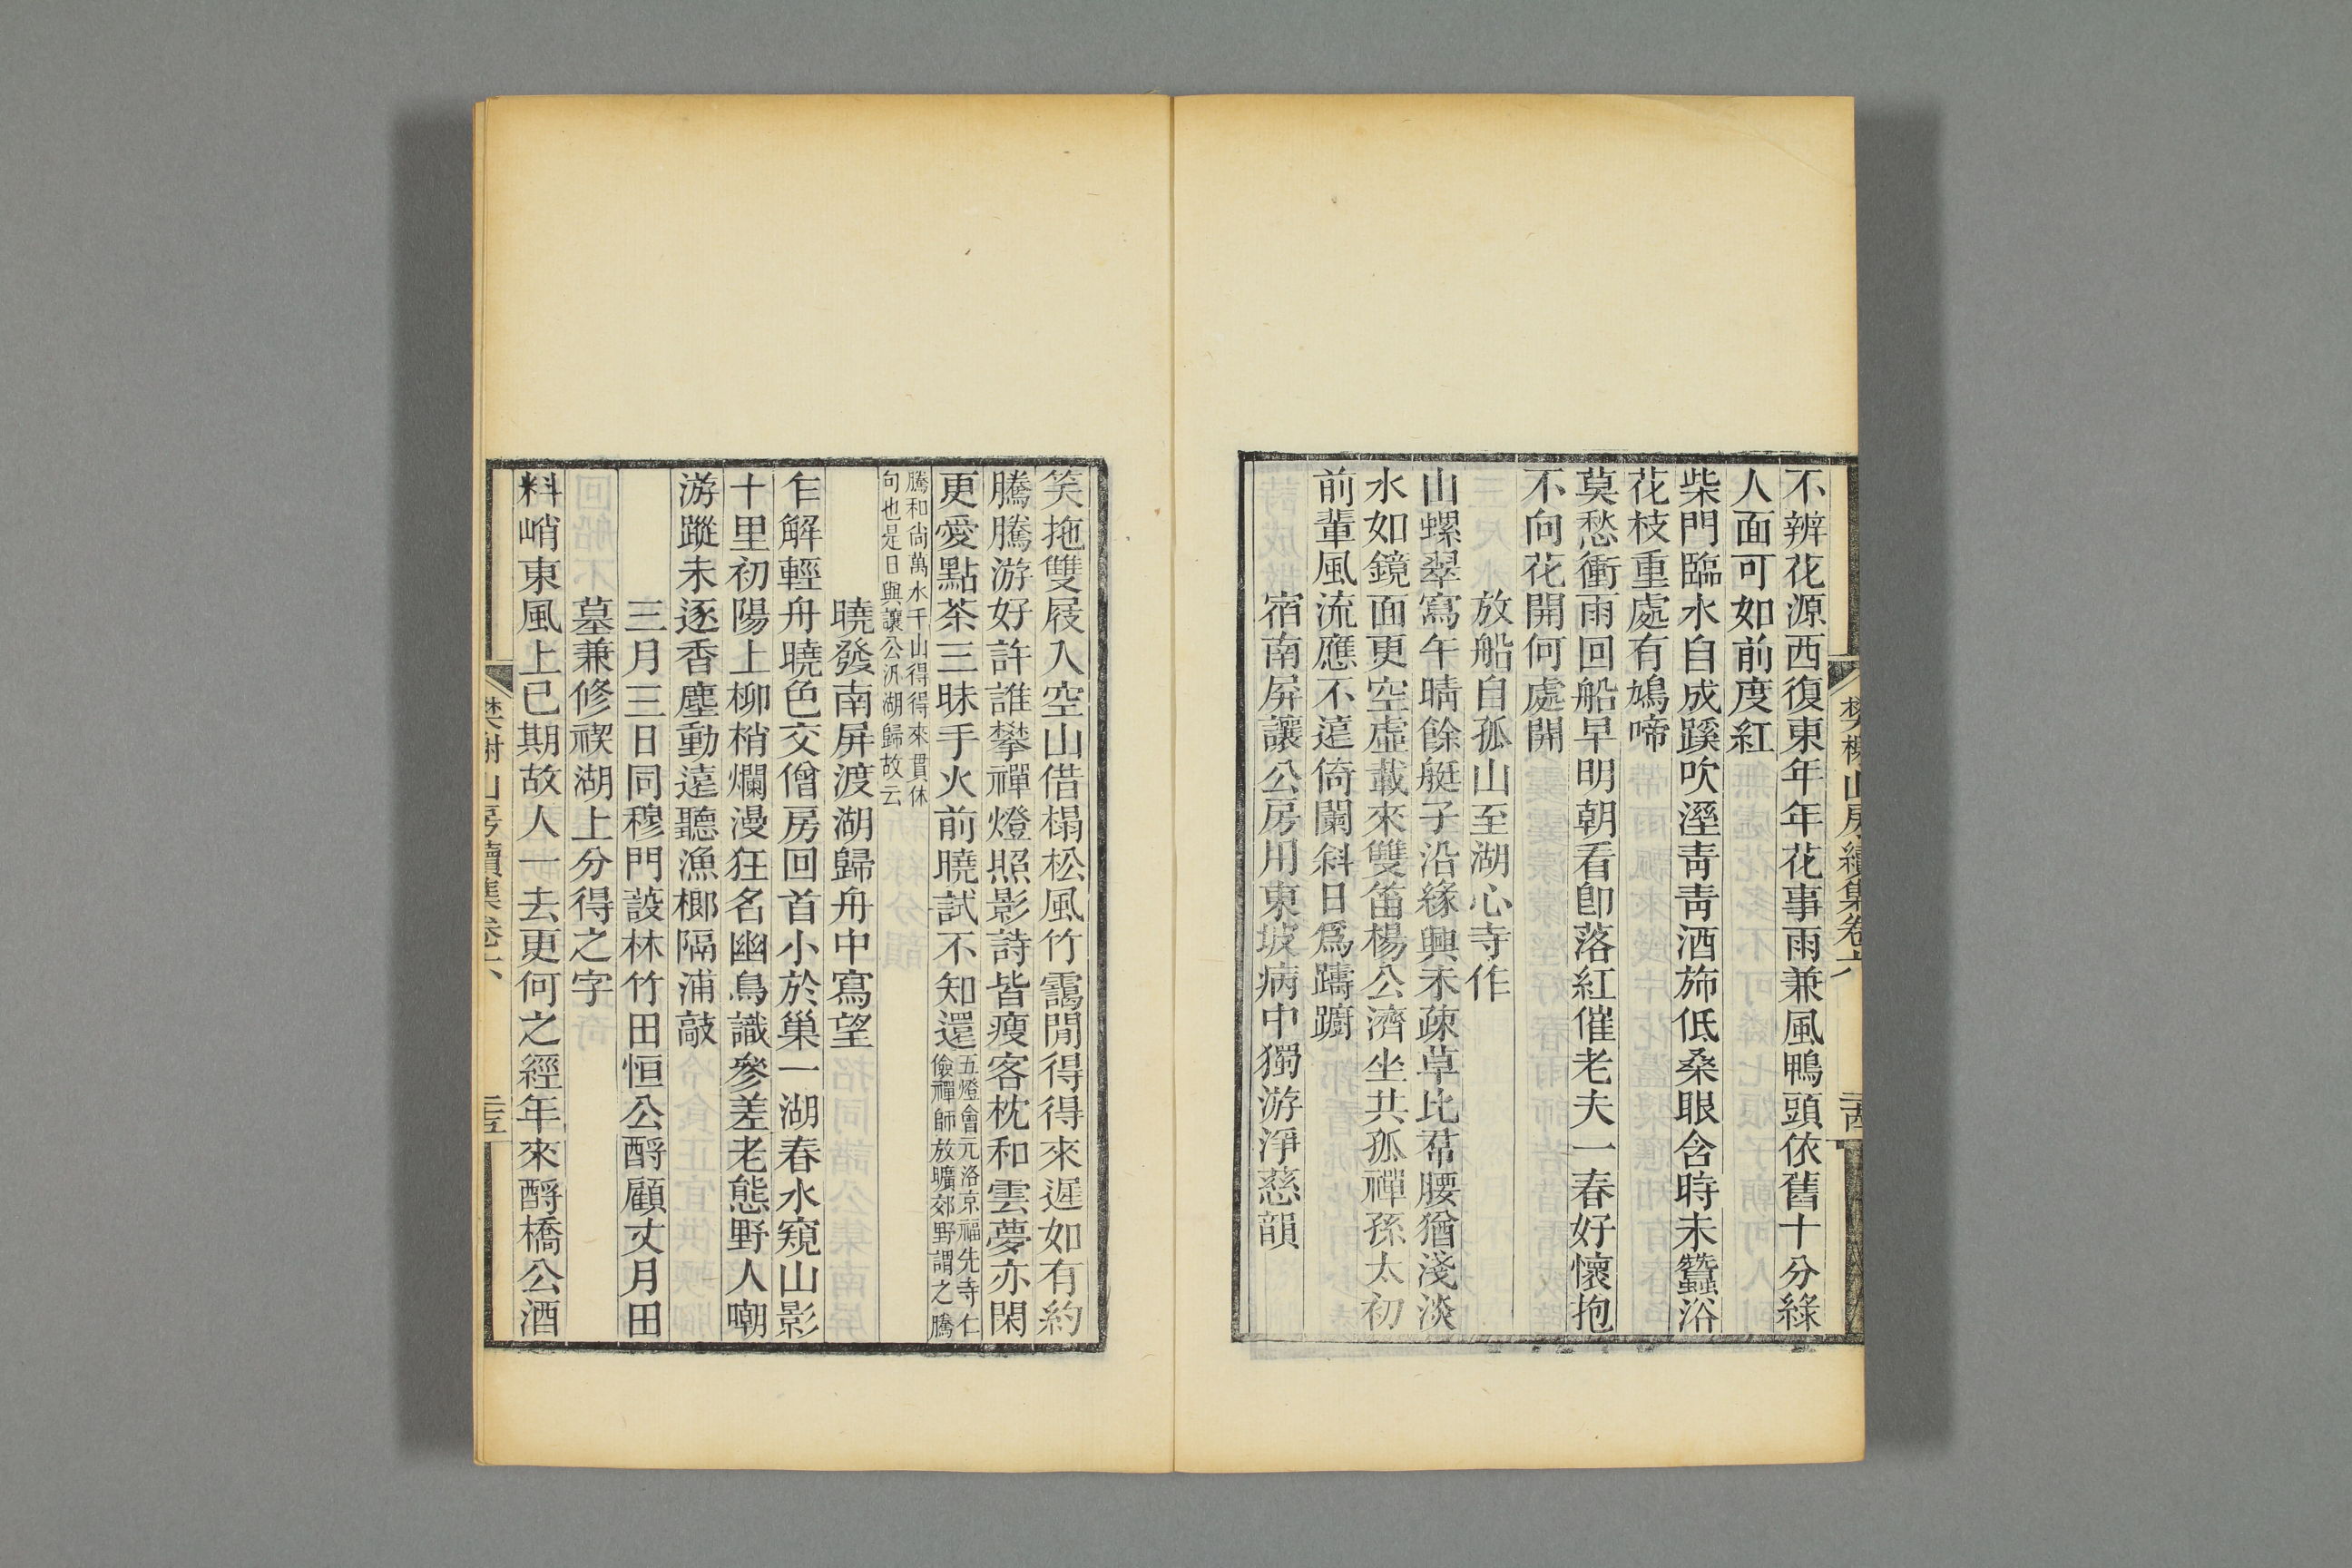 不辨花源西復東年年花事雨兼風鴨頭依舊十分綠
人面可如前度紅
柴門臨水自成蹊吹溼靑靑酒斾低桑眼含時未蠶浴
花枝重處有鳩啼
莫愁衝雨回船早明朝看卽落紅催老夫一春好懷抱
不向花開何處開
放船自孤山至湖心寺作
山螺翠寫午晴餘艇子沿緣興未疎草比帬腰猶淺淡
水如鏡面更空虛載來雙笛楊公濟坐共孤禪孫太初
前輩風流應不遠倚闌斜日爲躊躕
宿南屏讓公房用東坡病中獨游淨慈韻
樊榭山房續集卷六
笑拖雙屐入空山借榻松風竹靄閒得得來遲如有約
騰騰游好許誰攀禪燈照影詩皆瘦客枕和雲夢亦閑
更愛點茶三昧手火前曉試不知還五燈會元洛京福先寺仁
儉禪師放曠郊野謂之騰
騰和尙萬水千山得得來貫休
句也是日與讓公汎湖歸故云
曉發南屏渡湖歸舟中寫望
乍解輕舟曉色交僧房回首小於巢一湖春水窺山影
十里初陽上柳梢爛漫狂名幽鳥識參差老態野人嘲
游蹤未逐香塵動遠聽漁榔隔浦敲
三月三日同穆門設林竹田恒公酹顧丈月田
墓兼修禊湖上分得之字
料峭東風上巳期故人一去更何之經年來酹橋公酒
樊榭山房續集卷六